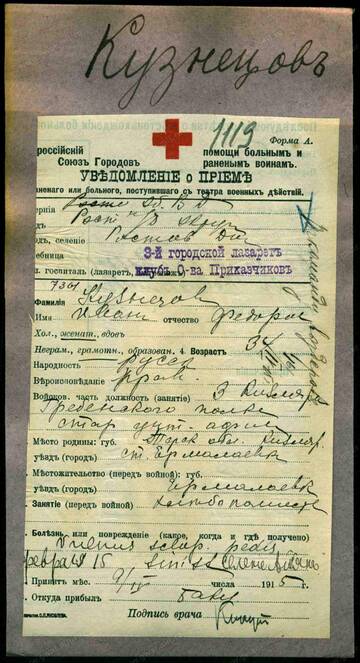 Кузнецовъ
1119
Форма А.
россійскій
Союзъ Городовъ
помощи больнымъ и
раненымъ воинамъ.
УВѢДОМЛЕНІЕ о ПРІЕМѢ
раненаго или больного, поступившаго съ театра военныхъ дѣйствій.
ернія
Рост н/Д
одъ, селеніе Ростов Дон
ебница 3-й городской лазаретъ
л. госпиталь (лазаретъ, клубъ О-ва Приказчиковъ
7361
Фамилія Кузнецов
Имя Иван отчество Федоров
Хол., женат., вдовъ
Неграм., грамотн., образован. 4. Возрастъ 34
Народность русск
Вѣроисповѣданіе прав.
Войсков. часть должность (занятіе) 3 Кизляро
Гребенского полка
Мѣсто родины: губ. Терск обл. Кизляр.
уѣздъ (городъ) ст. Ермолаевк
Мѣстожительство (передъ войной): губ.
уѣздъ (городъ) Ермолаевк
Занятіе (передъ войной) хлебопашест
Болѣзнь или поврежденіе (какое, когда и гдѣ получено)
Vulnus sclop. pedis
февраля 15 sin
Принятъ мѣс. 9/IV 1915 г.
Откуда прибылъ Баку
Подпись врача